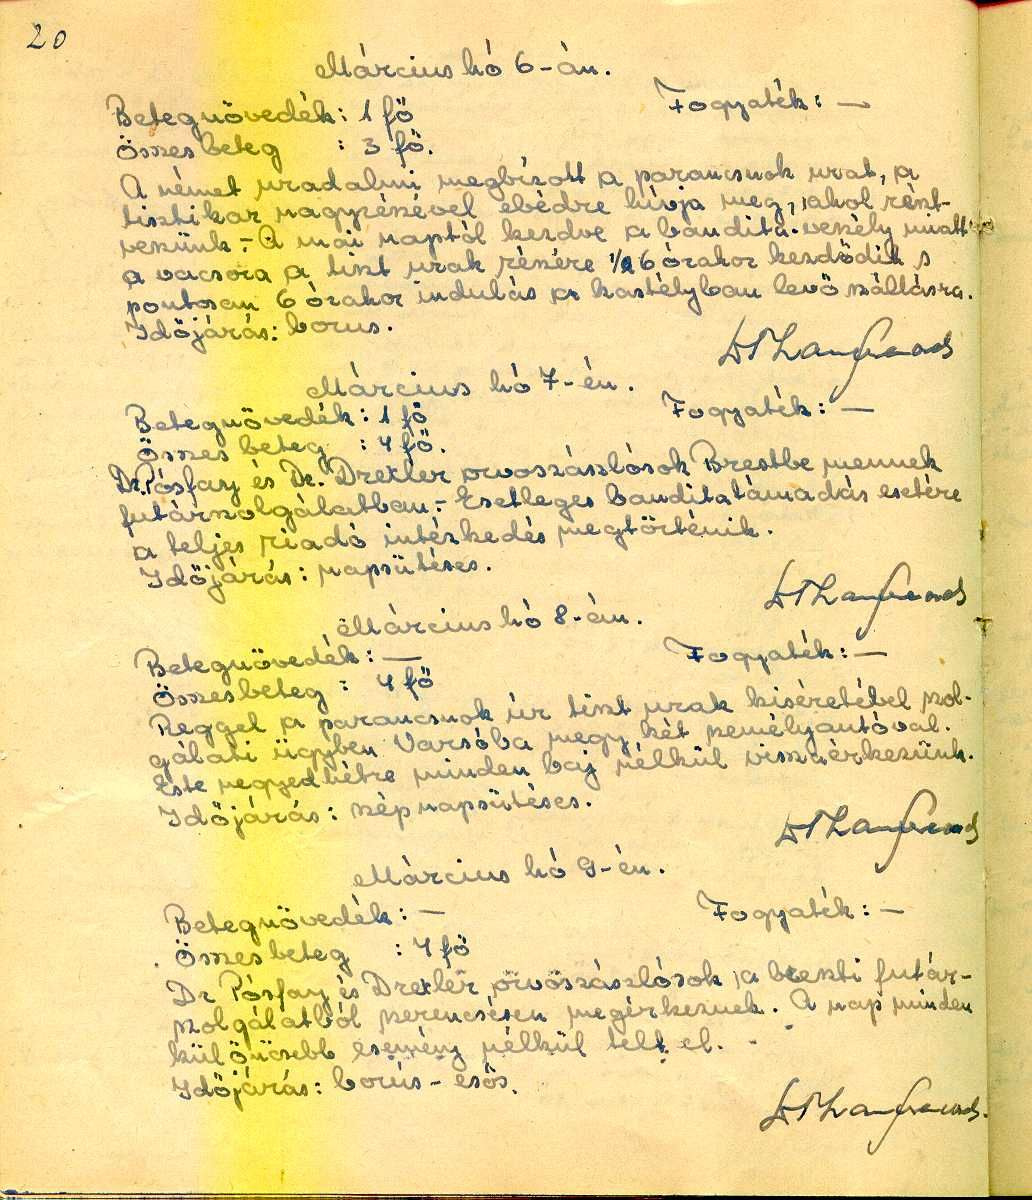 20
Március hó 6-án.
Betegnövedék: 1 fő Fogyaték: —
Összes beteg : 3 fő.
A német uradalmi megbízott a parancsnok urat, a
tisztikar nagyrészével ebédre hívja meg, ahol részt-
veszünk.- A mai naptól kezdve a bandita-veszély miatt
a vacsora a tiszt urak részére 1/2 6 órakor kezdődik s
pontosan 6 órakor indulás a kastélyban levő szállásra.
Időjárás: borus.
Március hó 7-én.
Betegnövedék: 1 fő Fogyaték: —
Összes beteg : 4 fő.
Dr. Pósfay és Dr. Drexler orvoszászlósok Brestbe mennek
futárszolgálatban.- Esetleges banditatámadás esetére
a teljes riadó intézkedés megtörténik.
Időjárás: napsütéses.
Március hó 8-án.
Betegnövedék: — Fogyaték: —
Összesbeteg : 4 fő
Reggel a parancsnok úr tiszt urak kiséretében szol-
gálati ügyben Varsóba megy két személyautóval.
Este negyedhétre minden baj nélkül visszaérkezünk.
Időjárás: szép napsütéses.
Március hó 9-én.
Betegnövedék: — Fogyaték: —
Összes beteg : 4 fő
Dr Pósfay és Drexler orvoszászlósok a breszti futár-
szolgálatból szerencsésen megérkeznek. A nap minden
különösebb esemény nélkül telt el. -
Időjárás: borús - esős.